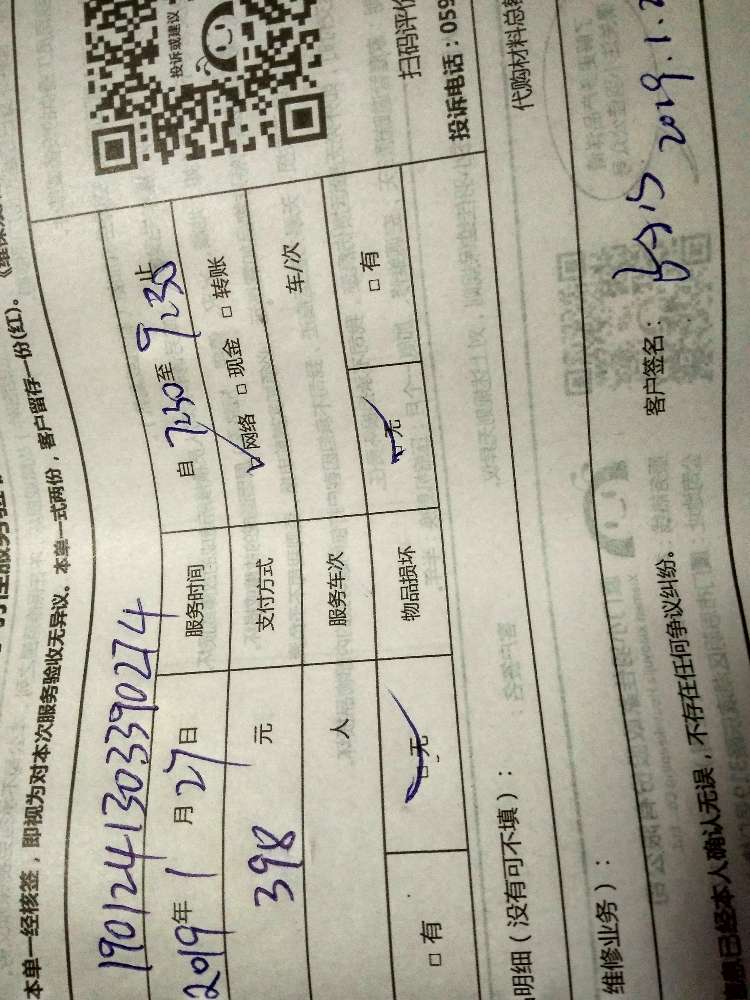 本单一经核签，即视为对本次服务验收无异议。本单一式两份，客户留存一份(红)。
1901241303390274
2019年1月27日 服务时间 自 7:30 至 9:30 止
398 元 支付方式 ☑网络 □现金 □转账
人 服务车次 车/次
□有 ☑无 物品损坏 ☑无 □有
投诉或建议
扫码评价
投诉电话：059
明细（没有可不填）：
代购材料总
维修业务）：
客户签名： 2019.1.2
息已经本人确认无误，不存在任何争议纠纷。